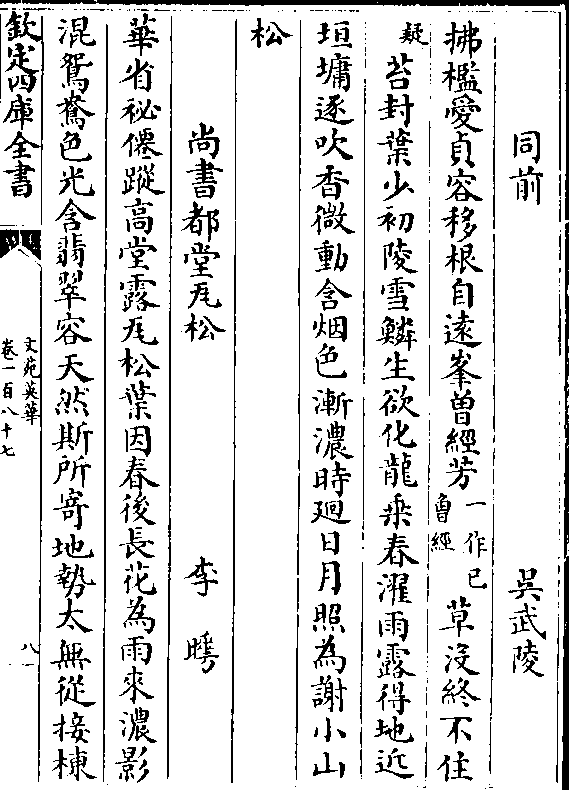 同前　吳武陵
拂檻愛貞容移根自遠峯曾經芳一作已魯經草沒終不住
疑苔封葉少初陵雪鱗生欲化龍乗春濯雨露得地近
垣墉逐吹香微動含烟色漸濃時廻日月照為謝小山
松
尚書都堂瓦松　李
華省祕僊蹤高堂露瓦松葉因春後長花為雨來濃影
混鴛鴦色光含翡翠容天然斯所寄地勢太無從接棟
欽定四庫全書
文苑英華
卷一百八十七
八